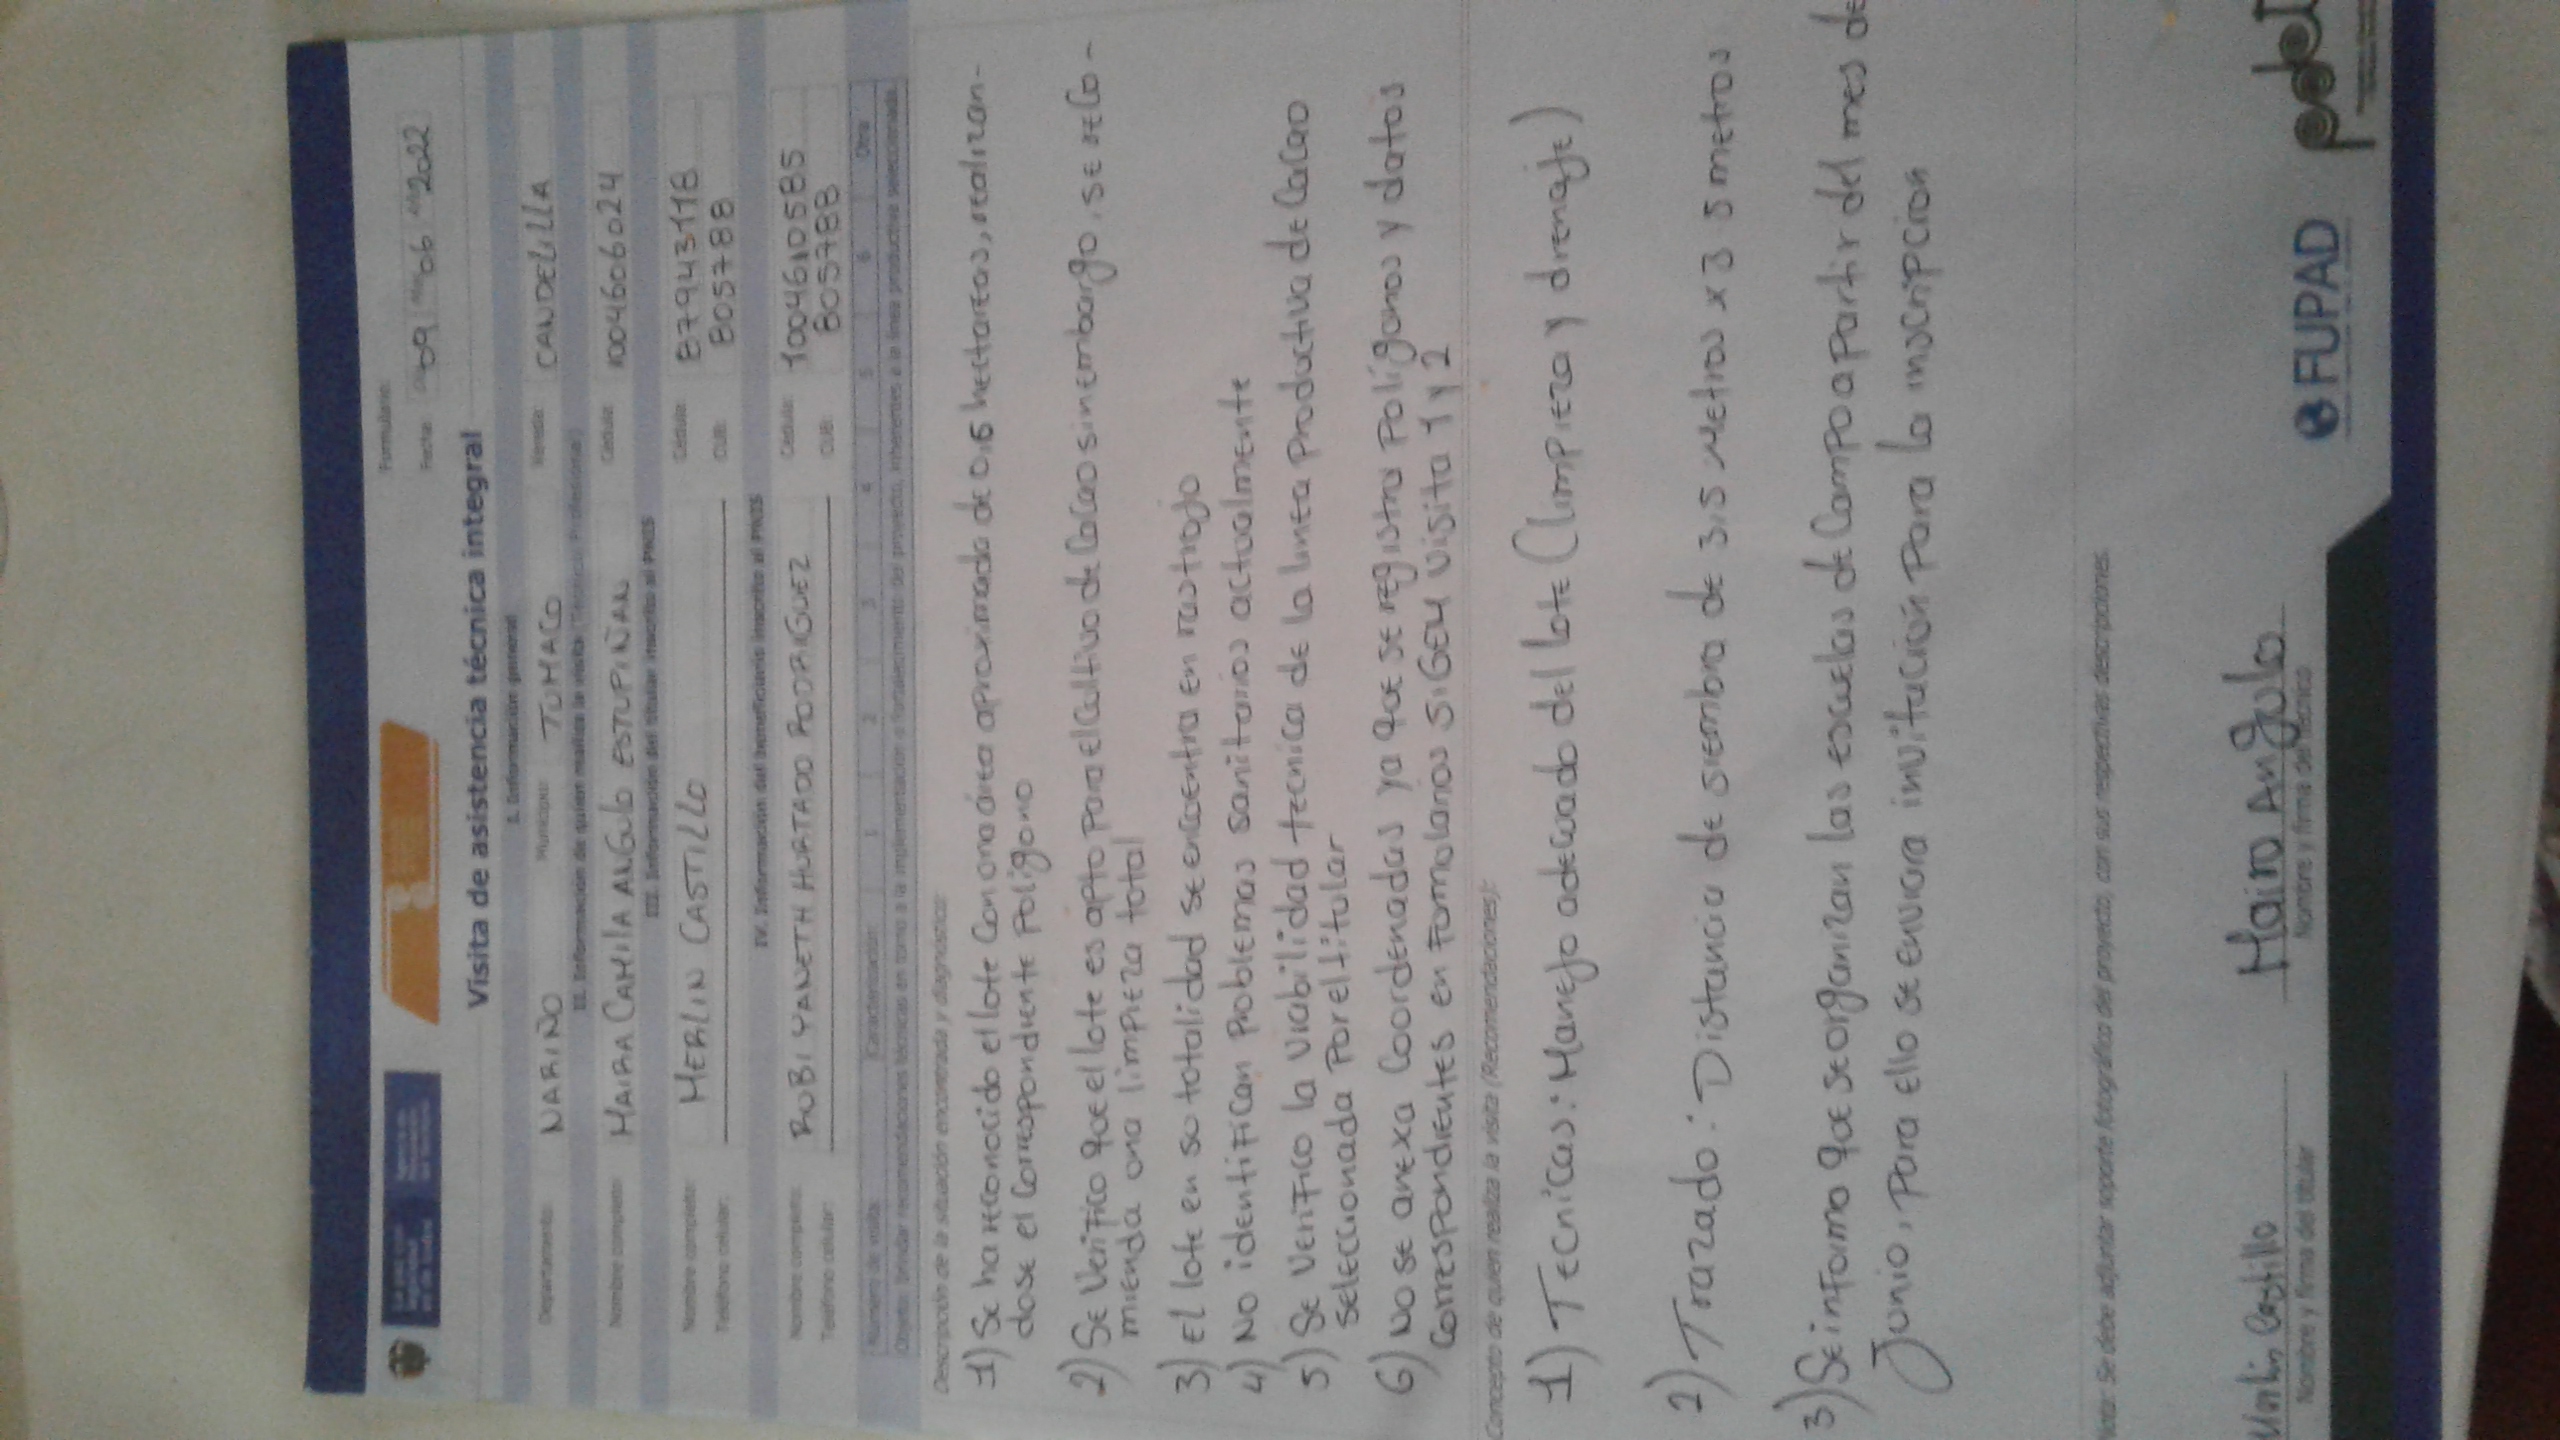 Formulario:
Fecha: 09 06 2022
Visita de asistencia técnica integral
I. Información general
Departamento: NARIÑO Municipio: TUMACO Vereda: CANDELILLA
II. Información de quien realiza la visita
Nombre completo: MAIRA CAMILA ANGULO ESTUPIÑAN Cédula: 1004606024
III. Información del titular inscrito al PNIS
Nombre completo: MERLIN CASTILLO Cédula: 87943118
Teléfono celular: CUB: 805788
IV. Información del beneficiario inscrito al PNIS
Nombre completo: RUBI YANETH HURTADO RODRIGUEZ Cédula: 1004610585
Teléfono celular: CUB: 805788
Número de visita Caracterización 1 2 3 4 5 6 Otra
Objeto: Brindar recomendaciones técnicas en torno a la implementación o fortalecimiento del proyecto, inherentes a la línea productiva seleccionada.
Descripción de la situación encontrada y diagnóstico:
1) Se ha reconocido el lote con una área aproximada de 0,5 hectareas, realizan-
dose el correspondiente Poligono
2) Se Verifico que el lote es apto para el cultivo de Cacao sin embargo, se reco-
mienda una limpieza total
3) El lote en su totalidad se encuentra en rastrojo
4) No identifican Problemas sanitarios actualmente
5) Se Verifico la viabilidad tecnica de la linea Productiva de Cacao
seleccionada Por el titular
6) No se anexa Coordenadas ya que se registra Poligonos y datos
correspondientes en Formularios SIGEM visita 1 y 2
Concepto de quien realiza la visita (Recomendaciones):
1) Tecnicas: Manejo adecuado del lote (limpieza y drenaje)
2) Trazado: Distancia de siembra de 3,5 Metros x 3 5 metros
3) Se informo que se organizan las escuelas de Campo a partir del mes de
Junio, Para ello se enviara invitación Para la inscripcion
Nota: Se debe adjuntar soporte fotográfico del proyecto, con sus respectivas descripciones.
Merlin Castillo Maira Angulo
Nombre y firma del titular Nombre y firma del técnico
FUPAD